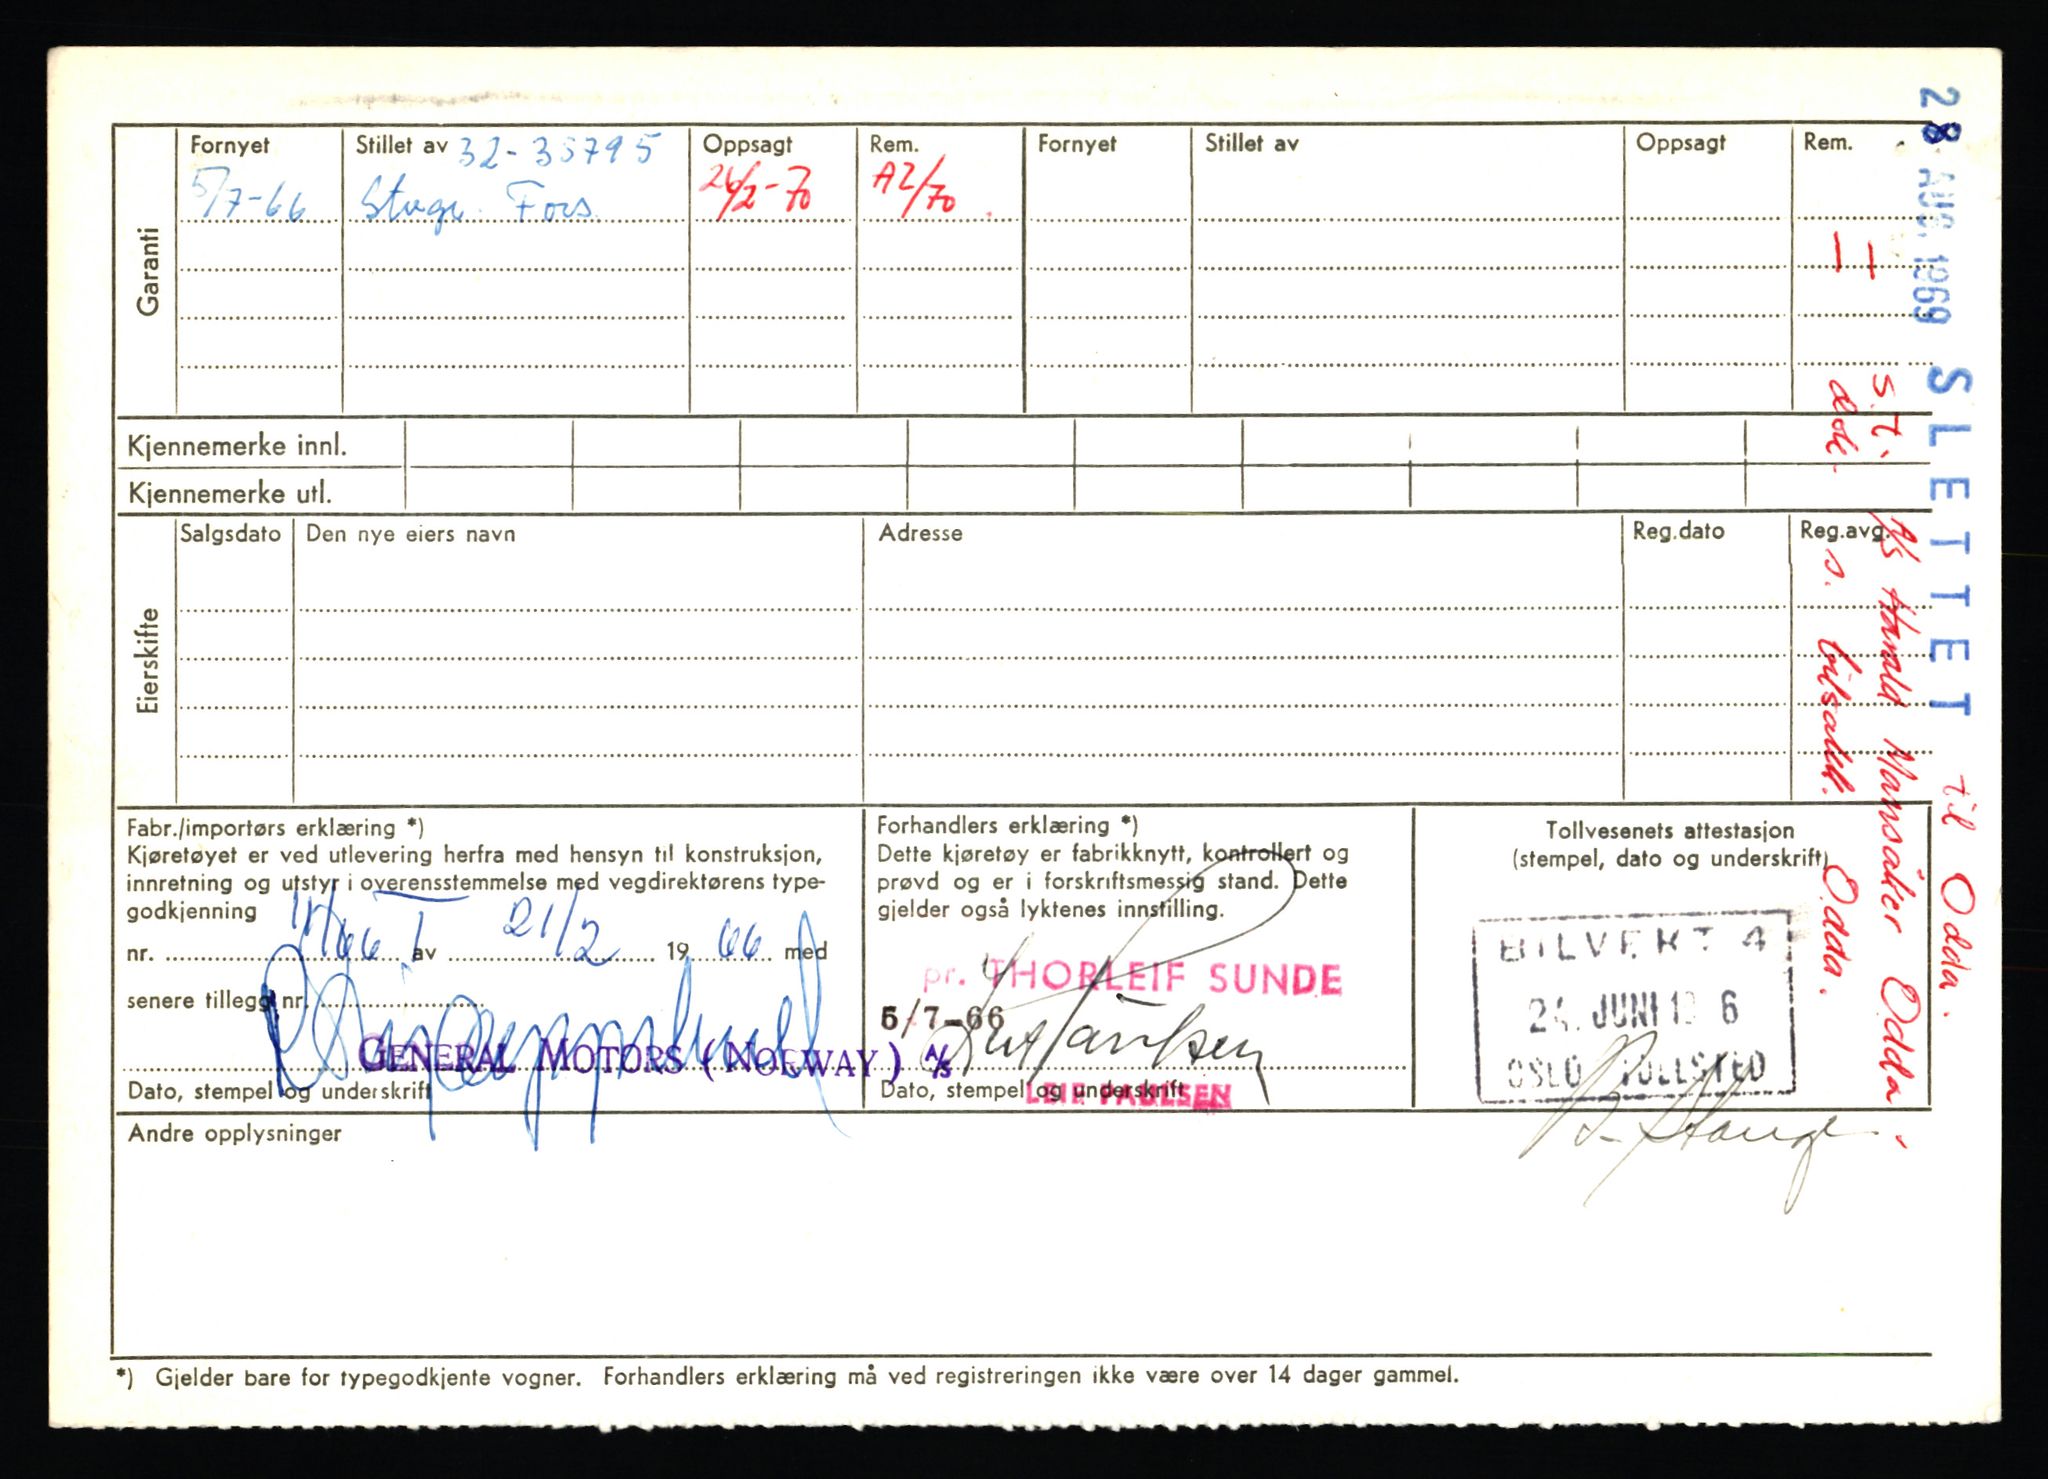 Garanti
Fornyet Stillet av 32-38795 Oppsagt Rem. Fornyet Stillet av Oppsagt Rem.
5/7-66 26/2-70 A2/70
Kjennemerke innl.
Kjennemerke utl.
Eierskifte
Salgsdato Den nye eiers navn Adresse Reg.dato Reg.avg.
Fabr./importørs erklæring *)
Kjøretøyet er ved utlevering herfra med hensyn til konstruksjon,
innretning og utstyr i overensstemmelse med vegdirektørens type-
godkjenning
nr. av 21/2 1966 med
senere tillegg nr.
GENERAL MOTORS (NORWAY) A/S
Dato, stempel og underskrift
Forhandlers erklæring *)
Dette kjøretøy er fabrikknytt, kontrollert og
prøvd og er i forskriftsmessig stand. Dette
gjelder også lyktenes innstilling.
pr. THORLEIF SUNDE
5/7-66
Leif Paulsen
LEIF PAULSEN
Dato, stempel og underskrift
Tollvesenets attestasjon
(stempel, dato og underskrift)
BILVERT 4
24. JUNI 19 6
OSLO TOLLSTED
Andre opplysninger
*) Gjelder bare for typegodkjente vogner. Forhandlers erklæring må ved registreringen ikke være over 14 dager gammel.
28 AUG. 1969 SLETTET til Odda.
s.t. A/S Harald Mansåker Odda
s. bilsakk. Odda.